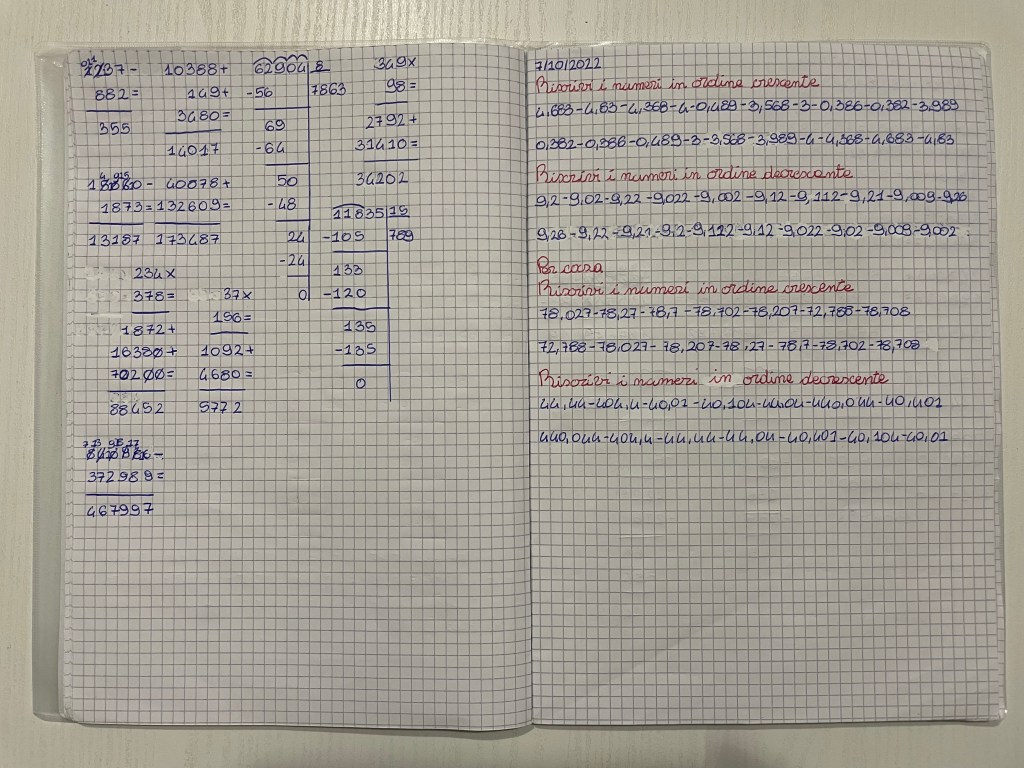 1237-
882=
355
10388+
149+
3480=
14017
62904 8
-56 7863
69
-64
50
-48
24
-24
0
349x
98=
2792+
31410=
34202
1873=
13187
40878+
132609=
173487
11835 15
-105 789
133
-120
135
-135
0
234x
378=
1872+
16380+
70200=
88452
1092+
4680=
5772
372989=
467997
7/10/2022
Riscrivi i numeri in ordine crescente
4,683-4,83-4,368-4-0,489-3,568-3-0,386-0,382-3,989
0,382-0,386-0,489-3-3,568-3,989-4-4,368-4,683-4,83
Riscrivi i numeri in ordine decrescente
9,2-9,02-9,22-9,022-9,002-9,12-9,112-9,21-9,009-9,26
9,26-9,22-9,21-9,2-9,122-9,12-9,022-9,02-9,009-9,002
Per casa
Riscrivi i numeri in ordine crescente
78,027-78,27-78,7-78,702-78,207-72,788-78,708
72,788-78,027-78,207-78,27-78,7-78,702-78,708
Riscrivi i numeri in ordine decrescente
44,44-404,4-40,01-40,104-44,04-440,044-40,401
440,044-404,4-44,44-44,04-40,401-40,104-40,01